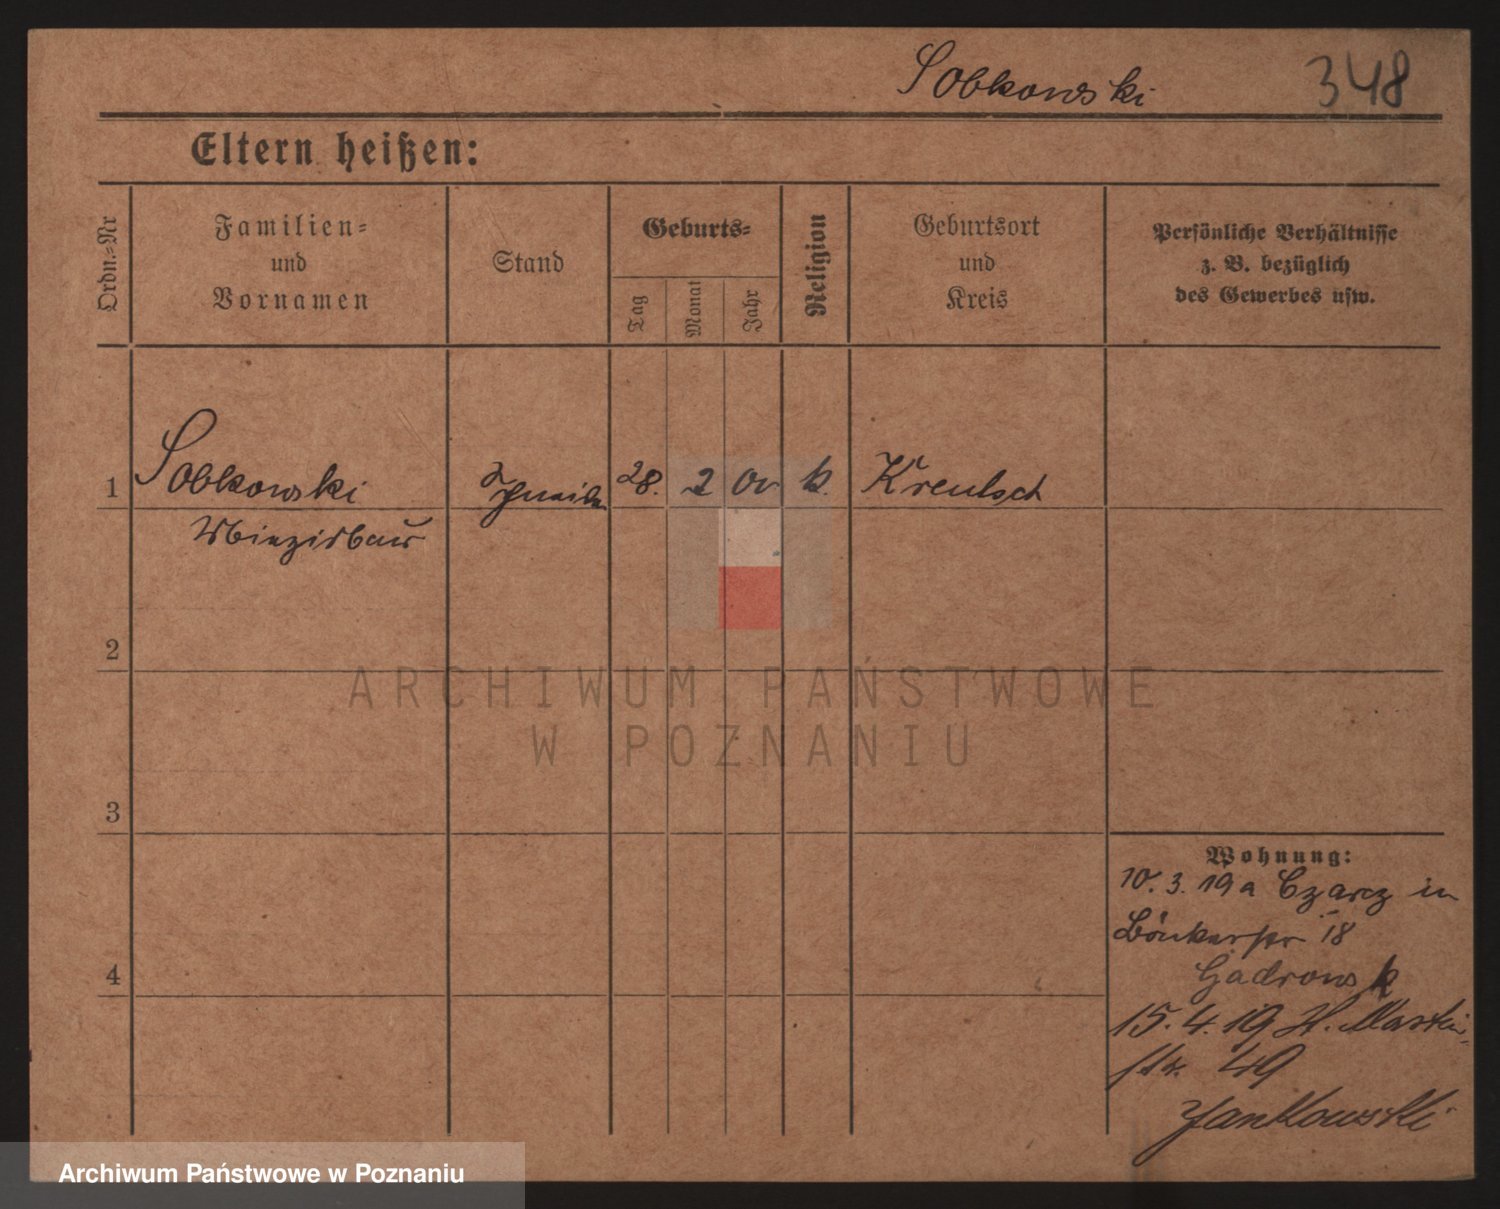 Sobkowski 348
Eltern heißen:
Ordn.=Nr
Familien=
und
Vornamen
Stand
Geburts=
Tag
Monat
Jahr
Religion
Geburtsort
und
Kreis
Persönliche Verhältnisse
z. B. bezüglich
des Gewerbes usw.
1 Sobkowski 28. 2 00 k. Kreutsch
2
3
4
Wohnung:
10. 3. 19 a Czarcz in
18
Gadrowsk
15. 4. 19 H. Martin-
str. 49
Jankowski
ARCHIWUM PAŃSTWOWE
W POZNANIU
Archiwum Państwowe w Poznaniu